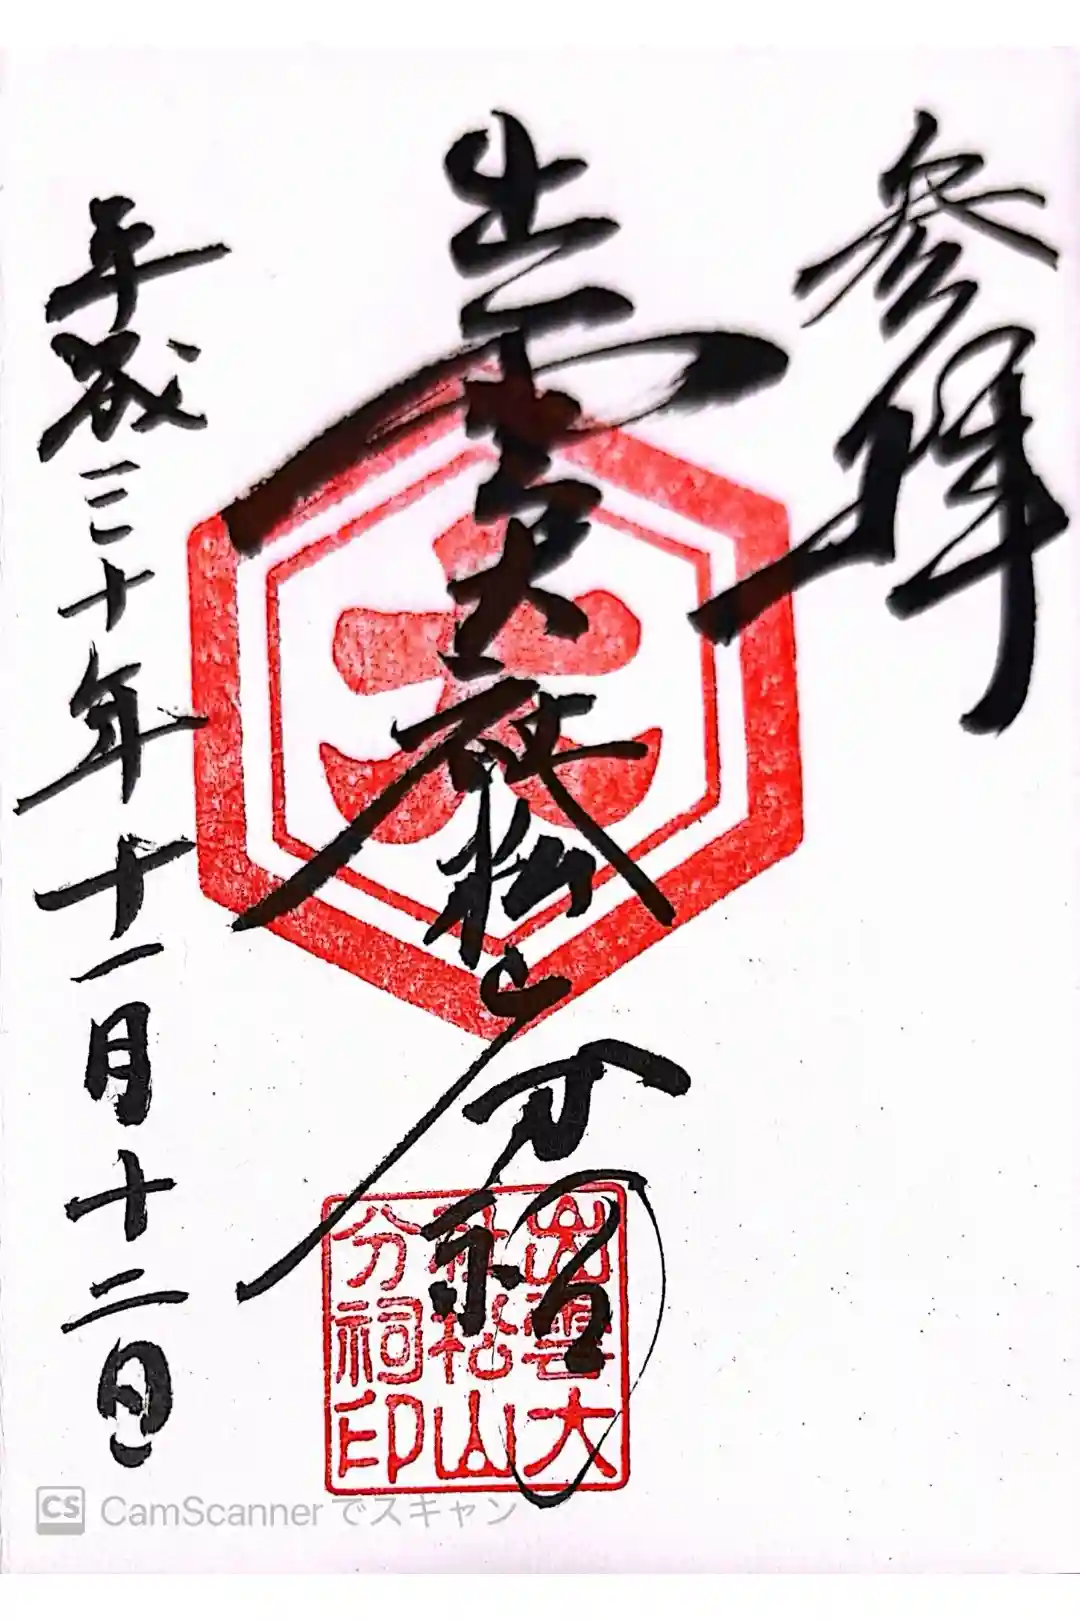 参拝
出雲大社松山分祠
平成三十年十一月十二日
大
出雲大
社松山
分祠印
CS CamScannerでスキャン